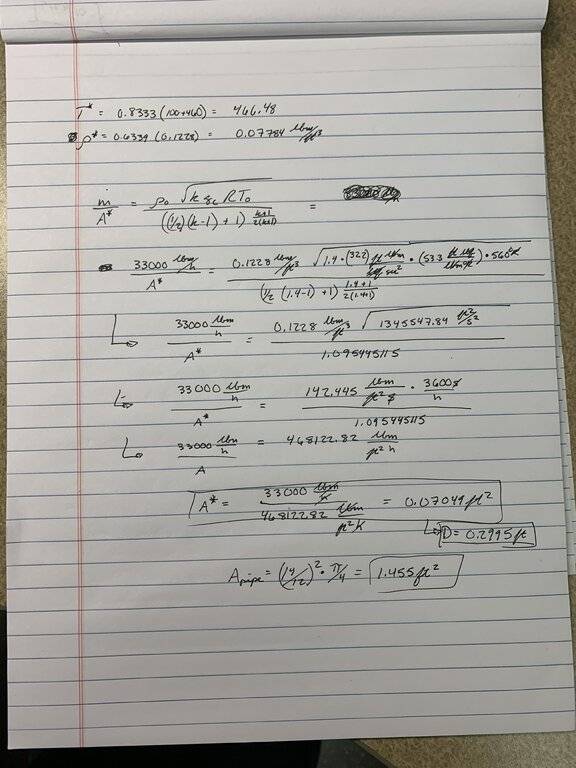 T* = 0.8333 (100+460) = 466.48
ρ* = 0.6339 (0.1228) = 0.07784 lbm/ft³
ṁ/A* = ρ₀ √(k g_c RT₀) / ((1/2)(k-1) + 1)^((k+1)/(2(k+1))) =
33000 lbm/h / A* = 0.1228 lbm/ft³ √(1.4 · (32.2) ft lbm/lbf sec² · (53.3 ft lbf/lbm°R) · 560°R) / ((1/2 (1.4-1) + 1)^((1.4+1)/(2(1.4+1))))
↳ 33000 lbm/h / A* = 0.1228 lbm/ft³ √(1345547.84 ft²/s²) / 1.095445115
↳ 33000 lbm/h / A* = 142.445 lbm/ft² s · 3600 s/h / 1.095445115
↳ 33000 lbm/h / A = 468122.82 lbm/ft² h
A* = 33000 lbm/h / 468122.82 lbm/ft² h = 0.07049 ft²
↳ D = 0.2995 ft
A pipe = (14/12)² · π/4 = 1.455 ft²